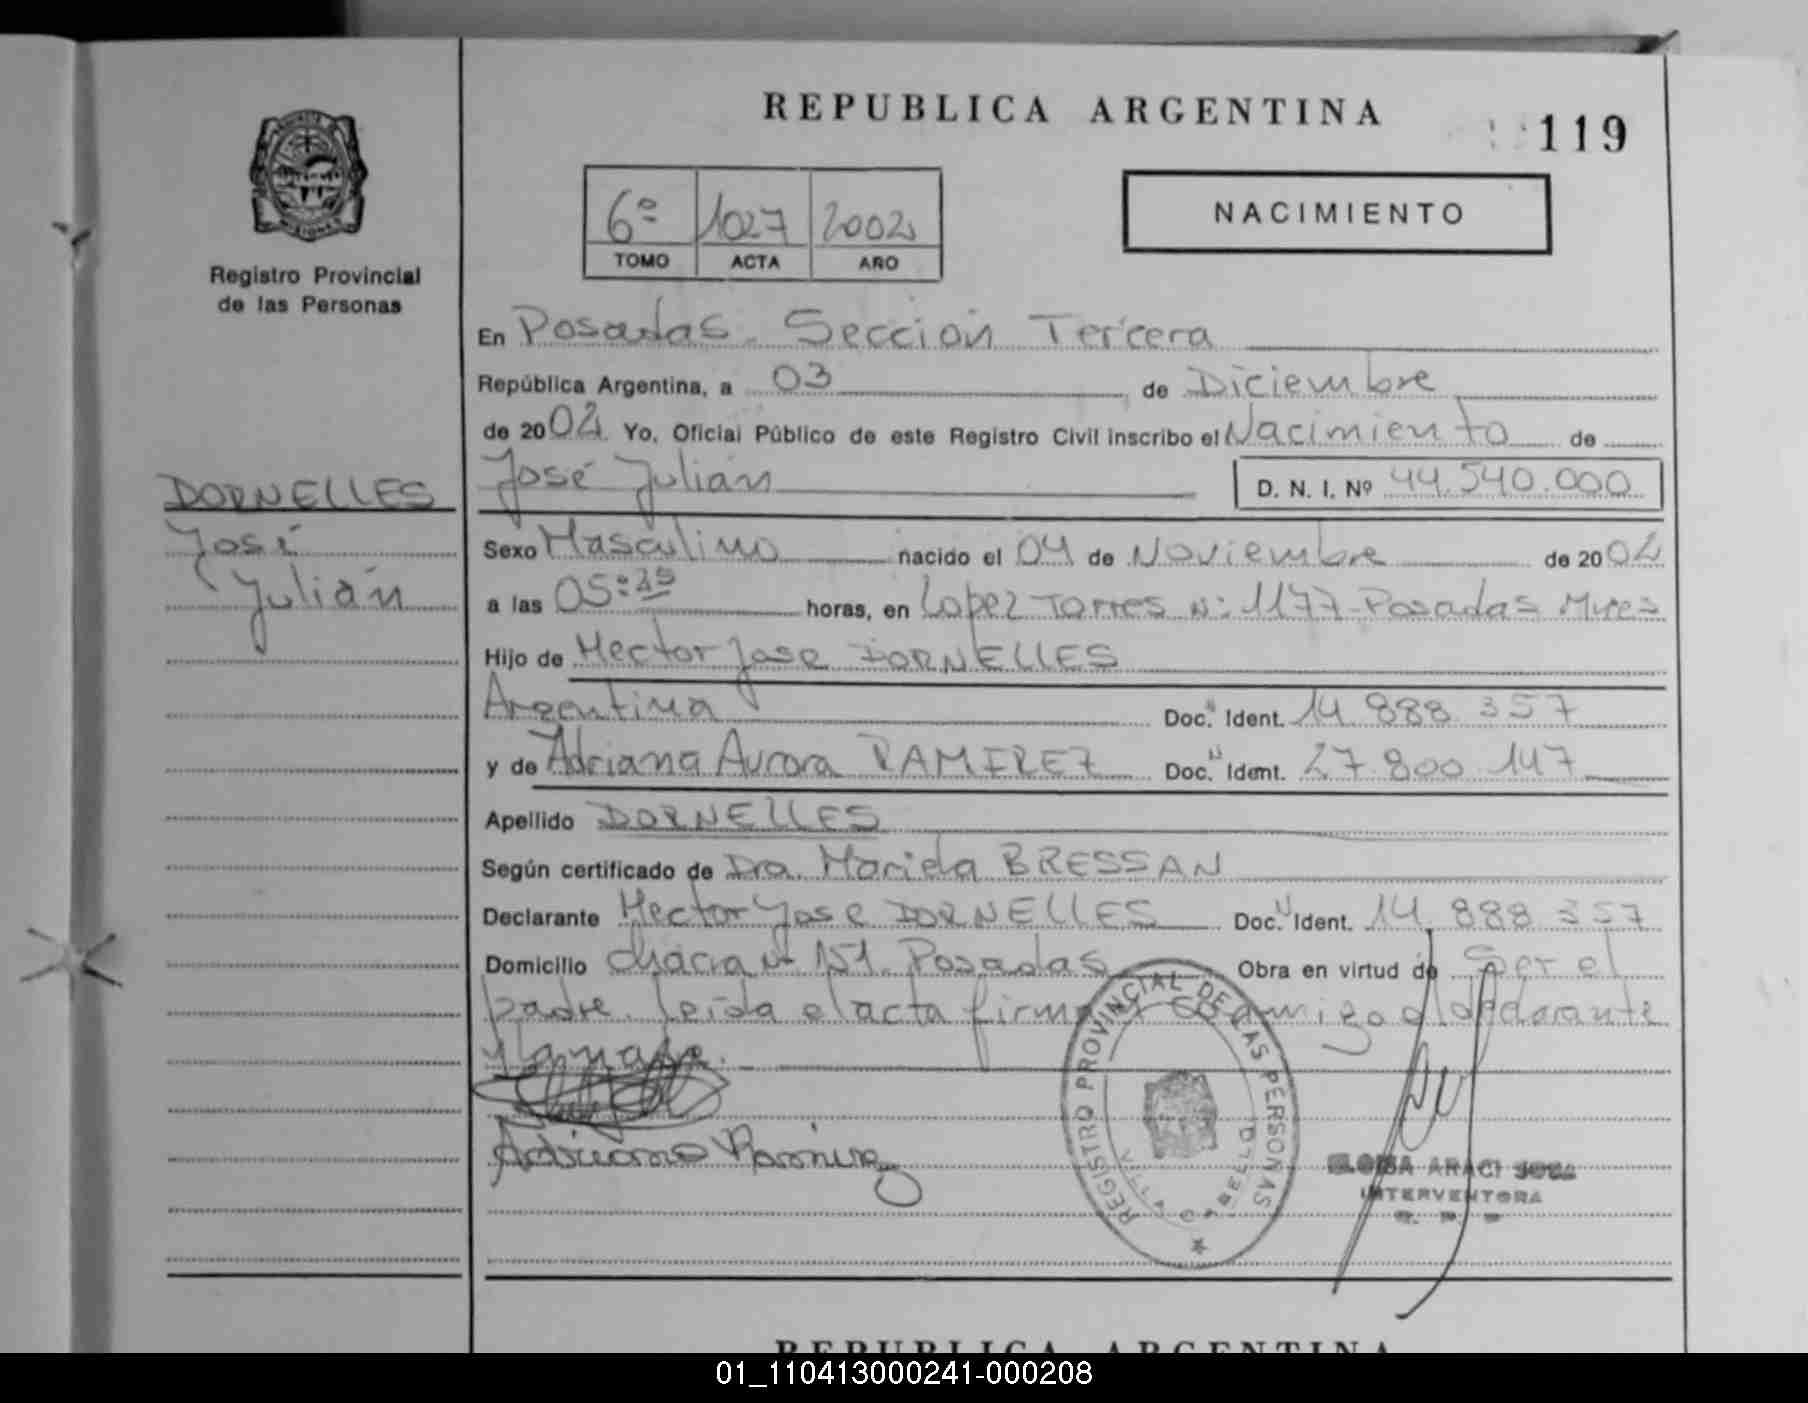 REPUBLICA ARGENTINA
119
6º 1027 2002
TOMO ACTA AÑO
NACIMIENTO
Registro Provincial
de las Personas
En Posadas. Sección Tercera
República Argentina, a 03 de Diciembre
de 2002 Yo, Oficial Público de este Registro Civil inscribo el Nacimiento de
José Julián D. N. I. Nº 44.540.000
DORNELLES
José
Julián
Sexo Masculino nacido el 04 de Noviembre de 2002
a las 05:25 horas, en Lopez Torres Nº 1177-Posadas Mnes
Hijo de Hector Jose DORNELLES
Argentina Doc. Ident. 14 888 357
y de Adriana Aurora RAMIREZ Doc. Ident. 27 800 147
Apellido DORNELLES
Según certificado de Dra. Mariela BRESSAN
Declarante Hector Jose DORNELLES Doc. Ident. 14 888 357
Domicilio chacra Nº 151. Posadas Obra en virtud de Ser el
padre. leida el acta firman conmigo el declarante
y la madre.
Adriana Ramirez
REGISTRO PROVINCIAL DE LAS PERSONAS
VILLA CABELLO
ARACI
INTERVENTORA
REPUBLICA ARGENTINA
01_110413000241-000208